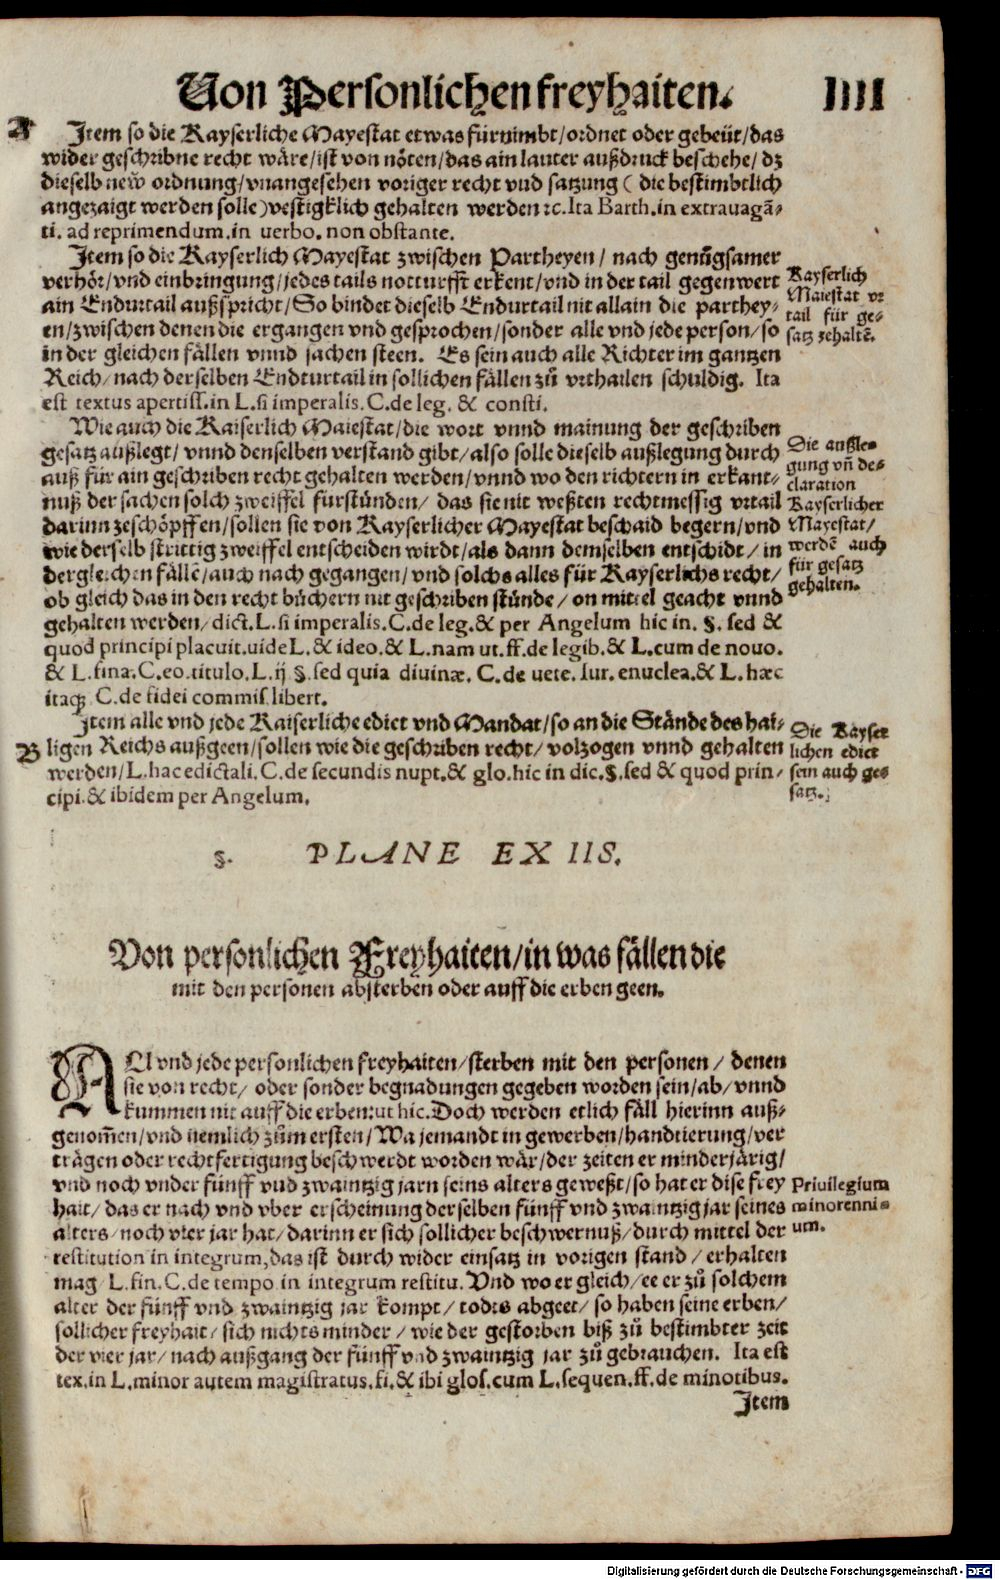 Von Personlichen freyhaiten. IIII
A Item so die Kayserliche Mayestat etwas fürnimbt/ordnet oder gebeüt/das
wider geschribne recht wäre/ist von nöten/das ain lauter außdruck beschehe/dz
dieselb new ordnung/vnangesehen voriger recht vnd satzung ( die bestimbtlich
angezaigt werden solle) vestigklich gehalten werden ꝛc. Ita Barth. in extravagã-
ti. ad reprimendum. in uerbo. non obstante.
Item so die Kayserlich Mayestat zwischen Partheyen/ nach genůgsamer
verhör/vnd einbringung/jedes tails notturfft erkent/vnd in der tail gegenwert
ain Endurtail außspricht/So bindet dieselb Endurtail nit allain die parthey-
en/zwischen denen die ergangen vnd gesprochen/sonder alle vnd jede person/so
in der gleichen fällen vnnd sachen steen. Es sein auch alle Richter im gantzen
Reich/nach derselben Endturtail in sollichen fällen zů vrthailen schuldig. Ita
est textus apertiss. in L. si imperalis. C. de leg. & consti.
Kayserlich
Maiestat vr
tail für ge-
satz zehaltẽ.
Wie auch die Kaiserlich Maiestat/die wort vnnd mainung der geschriben
gesatz außlegt/ vnnd denselben verstand gibt/also solle dieselb außlegung durch
auß für ain geschriben recht gehalten werden/vnnd wo den richtern in erkant-
nuß der sachen solch zweiffel fürstünden/ das sie nit weßten rechtmessig vrtail
darinn zeschöpffen/sollen sie von Kayserlicher Mayestat beschaid begern/vnd
wie derselb strittig zweiffel entscheiden wirdt/als dann demselben entschidt/ in
dergleichen fällẽ/auch nach gegangen/vnd solchs alles für Kayserlichs recht/
ob gleich das in den recht büchern nit geschriben stünde/ on mittel geacht vnnd
gehalten werden/dict. L. si imperalis. C. de leg. & per Angelum hic in. §. sed &
quod principi placuit. uide L. & ideo. & L. nam ut. ff. de legib. & L. cum de nouo.
& L. fina. C. eo. titulo. L. ij §. sed quia divinæ. C. de uete. Iur. enuclea. & L. hæc
itaq; C. de fidei commis. libert.
Die außle-
gung vñ de-
claration
Kayserlicher
Mayestat/
werdẽ auch
für gesatz
gehalten.
Item alle vnd jede Kaiserliche edict vnd Mandat/so an die Stände des hai-
B ligen Reichs außgeen/sollen wie die geschriben recht/ volzogen vnnd gehalten
werden/L. hac edictali. C. de secundis nupt. & glo. hic in dic. §. sed & quod prin-
cipi. & ibidem per Angelum.
Die Kayser
lichen edict
sein auch ge-
satz.
§. PLANE EX IIS.
Von personlichen Freyhaiten/in was fällen die
mit den personen absterben oder auff die erben geen.
All vnd jede personlichen freyhaiten/sterben mit den personen/ denen
sie von recht/ oder sonder begnadungen gegeben worden sein/ab/vnnd
kummen nit auff die erben: ut hic. Doch werden etlich fäll hierinn auß-
genom̃en/vnd nemlich zům ersten/Wa jemandt in gewerben/handtierung/ver
trägen oder rechtfertigung beschwerdt worden wär/der zeiten er minderjärig/
vnd noch vnder fünff vnd zwaintzig jarn seins alters geweßt/so hat er dise frey
hait/das er nach vnd vber erscheinung derselben fünff vnd zwaintzig jar seines
alters/noch vier jar hat/darinn er sich sollicher beschwernuß/durch mittel der
restitution in integrum, das ist durch wider einsatz in vorigen stand/erhalten
mag L. fin. C. de tempo. in integrum restitu. Vnd wo er gleich/ee er zů solchem
alter der fünff vnd zwaintzig jar kompt/ todts abgeet/ so haben seine erben/
sollicher freyhait/sich nichts minder/ wie der gestorben biß zů bestimbter zeit
der vier jar/nach außgang der fünff vnd zwaintzig jar zů gebrauchen. Ita est
tex. in L. minor autem magistratus. fi. & ibi glos. cum L. sequen. ff. de minoribus.
Priuilegium
minorenni-
um.
Item
Digitalisierung gefördert durch die Deutsche Forschungsgemeinschaft - DFG